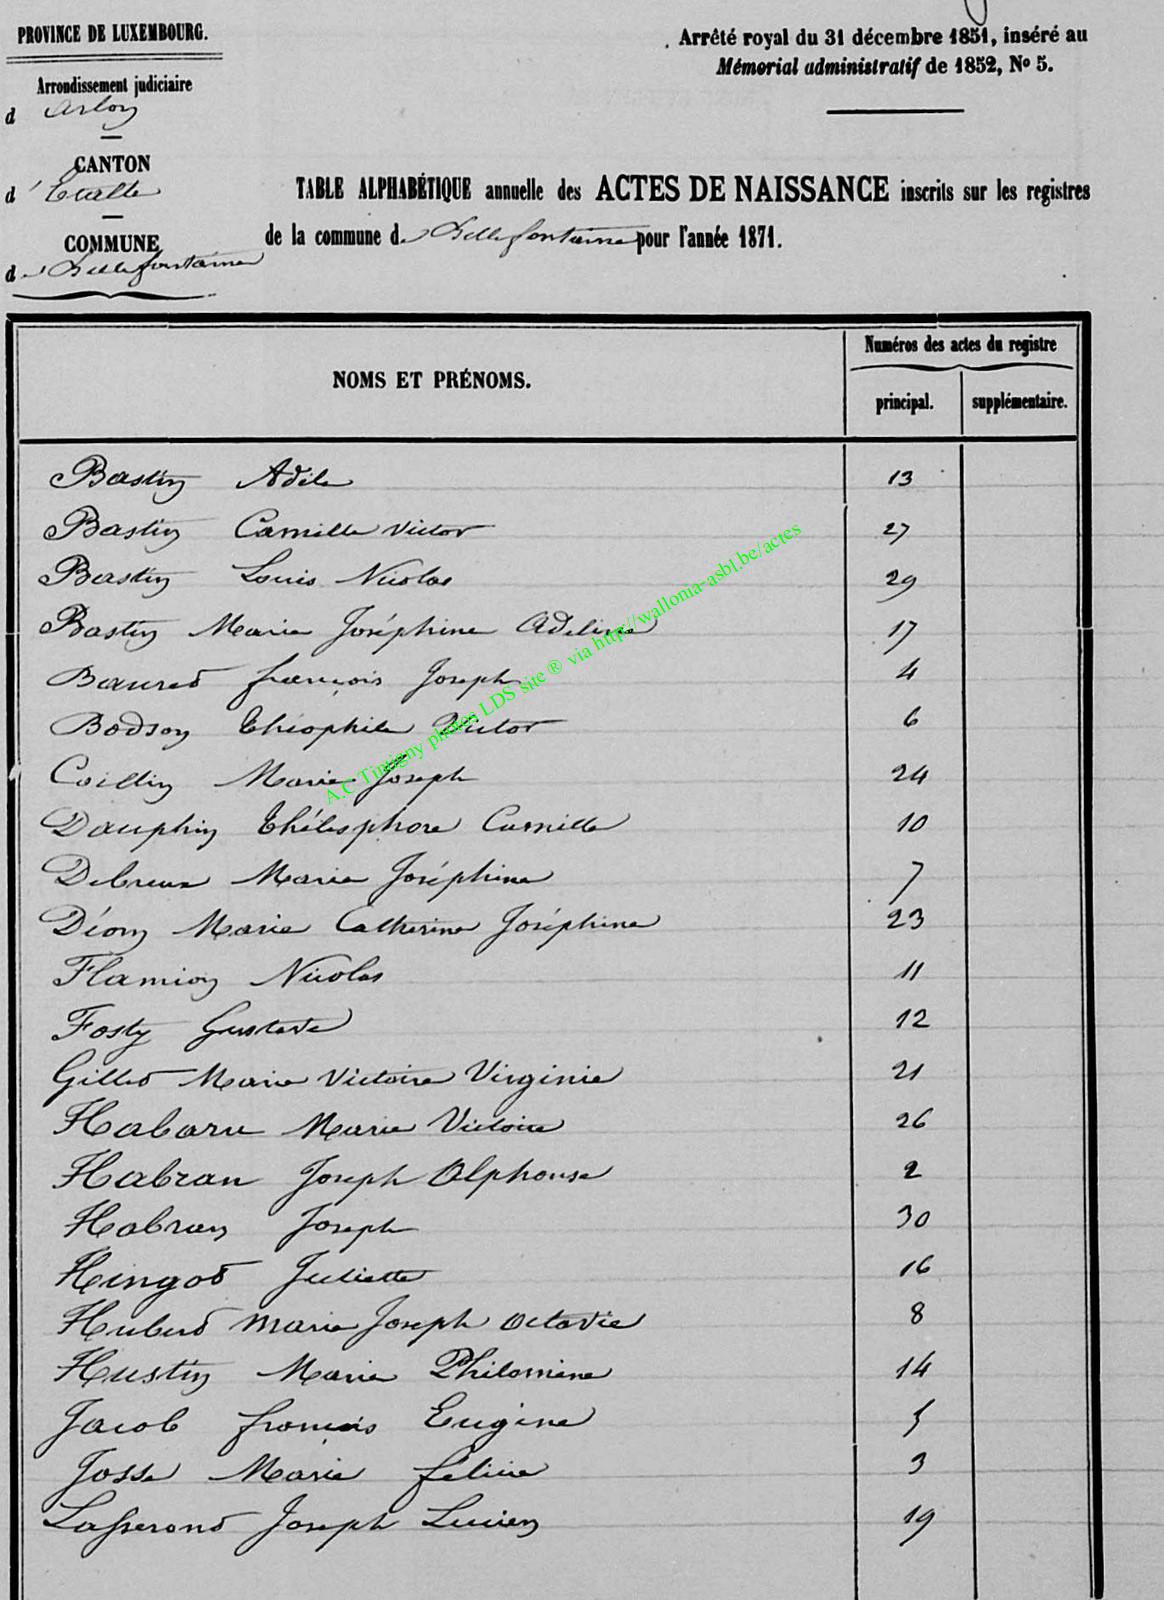 PROVINCE DE LUXEMBOURG.
Arrêté royal du 31 décembre 1851, inséré au
Mémorial administratif de 1852, Nº 5.
Arrondissement judiciaire
d Arlon
CANTON
d'Etalle
COMMUNE
de Bellefontaine
TABLE ALPHABÉTIQUE annuelle des ACTES DE NAISSANCE inscrits sur les registres
de la commune de Bellefontaine pour l'année 1871.
Numéros des actes du registre
NOMS ET PRÉNOMS.
principal. supplémentaire.
Bastin Adèle 13
Bastin Camille Victor 27
Bastin Louis Nicolas 29
Bastin Marie Joséphine Adeline 17
François Joseph 4
Bodson Théophile Victor 6
Marie Joseph 24
Dauphin Thélesphore Camille 10
Marie Joséphine 7
Déom Marie Catherine Joséphine 23
Flamion Nicolas 11
Fosty Gustave 12
Gillet Marie Victoire Virginie 21
Habaru Marie Victoire 26
Habran Joseph Alphonse 2
Habran Joseph 30
Hingot Juliette 16
Hubert Marie Joseph Octavie 8
Hustin Marie Philomène 14
Jacob François Eugène 5
Josse Marie Félicie 3
Joseph Lucien 19
A.C Tintigny photos LDS site ® via http://wallonia-asbl.be/actes